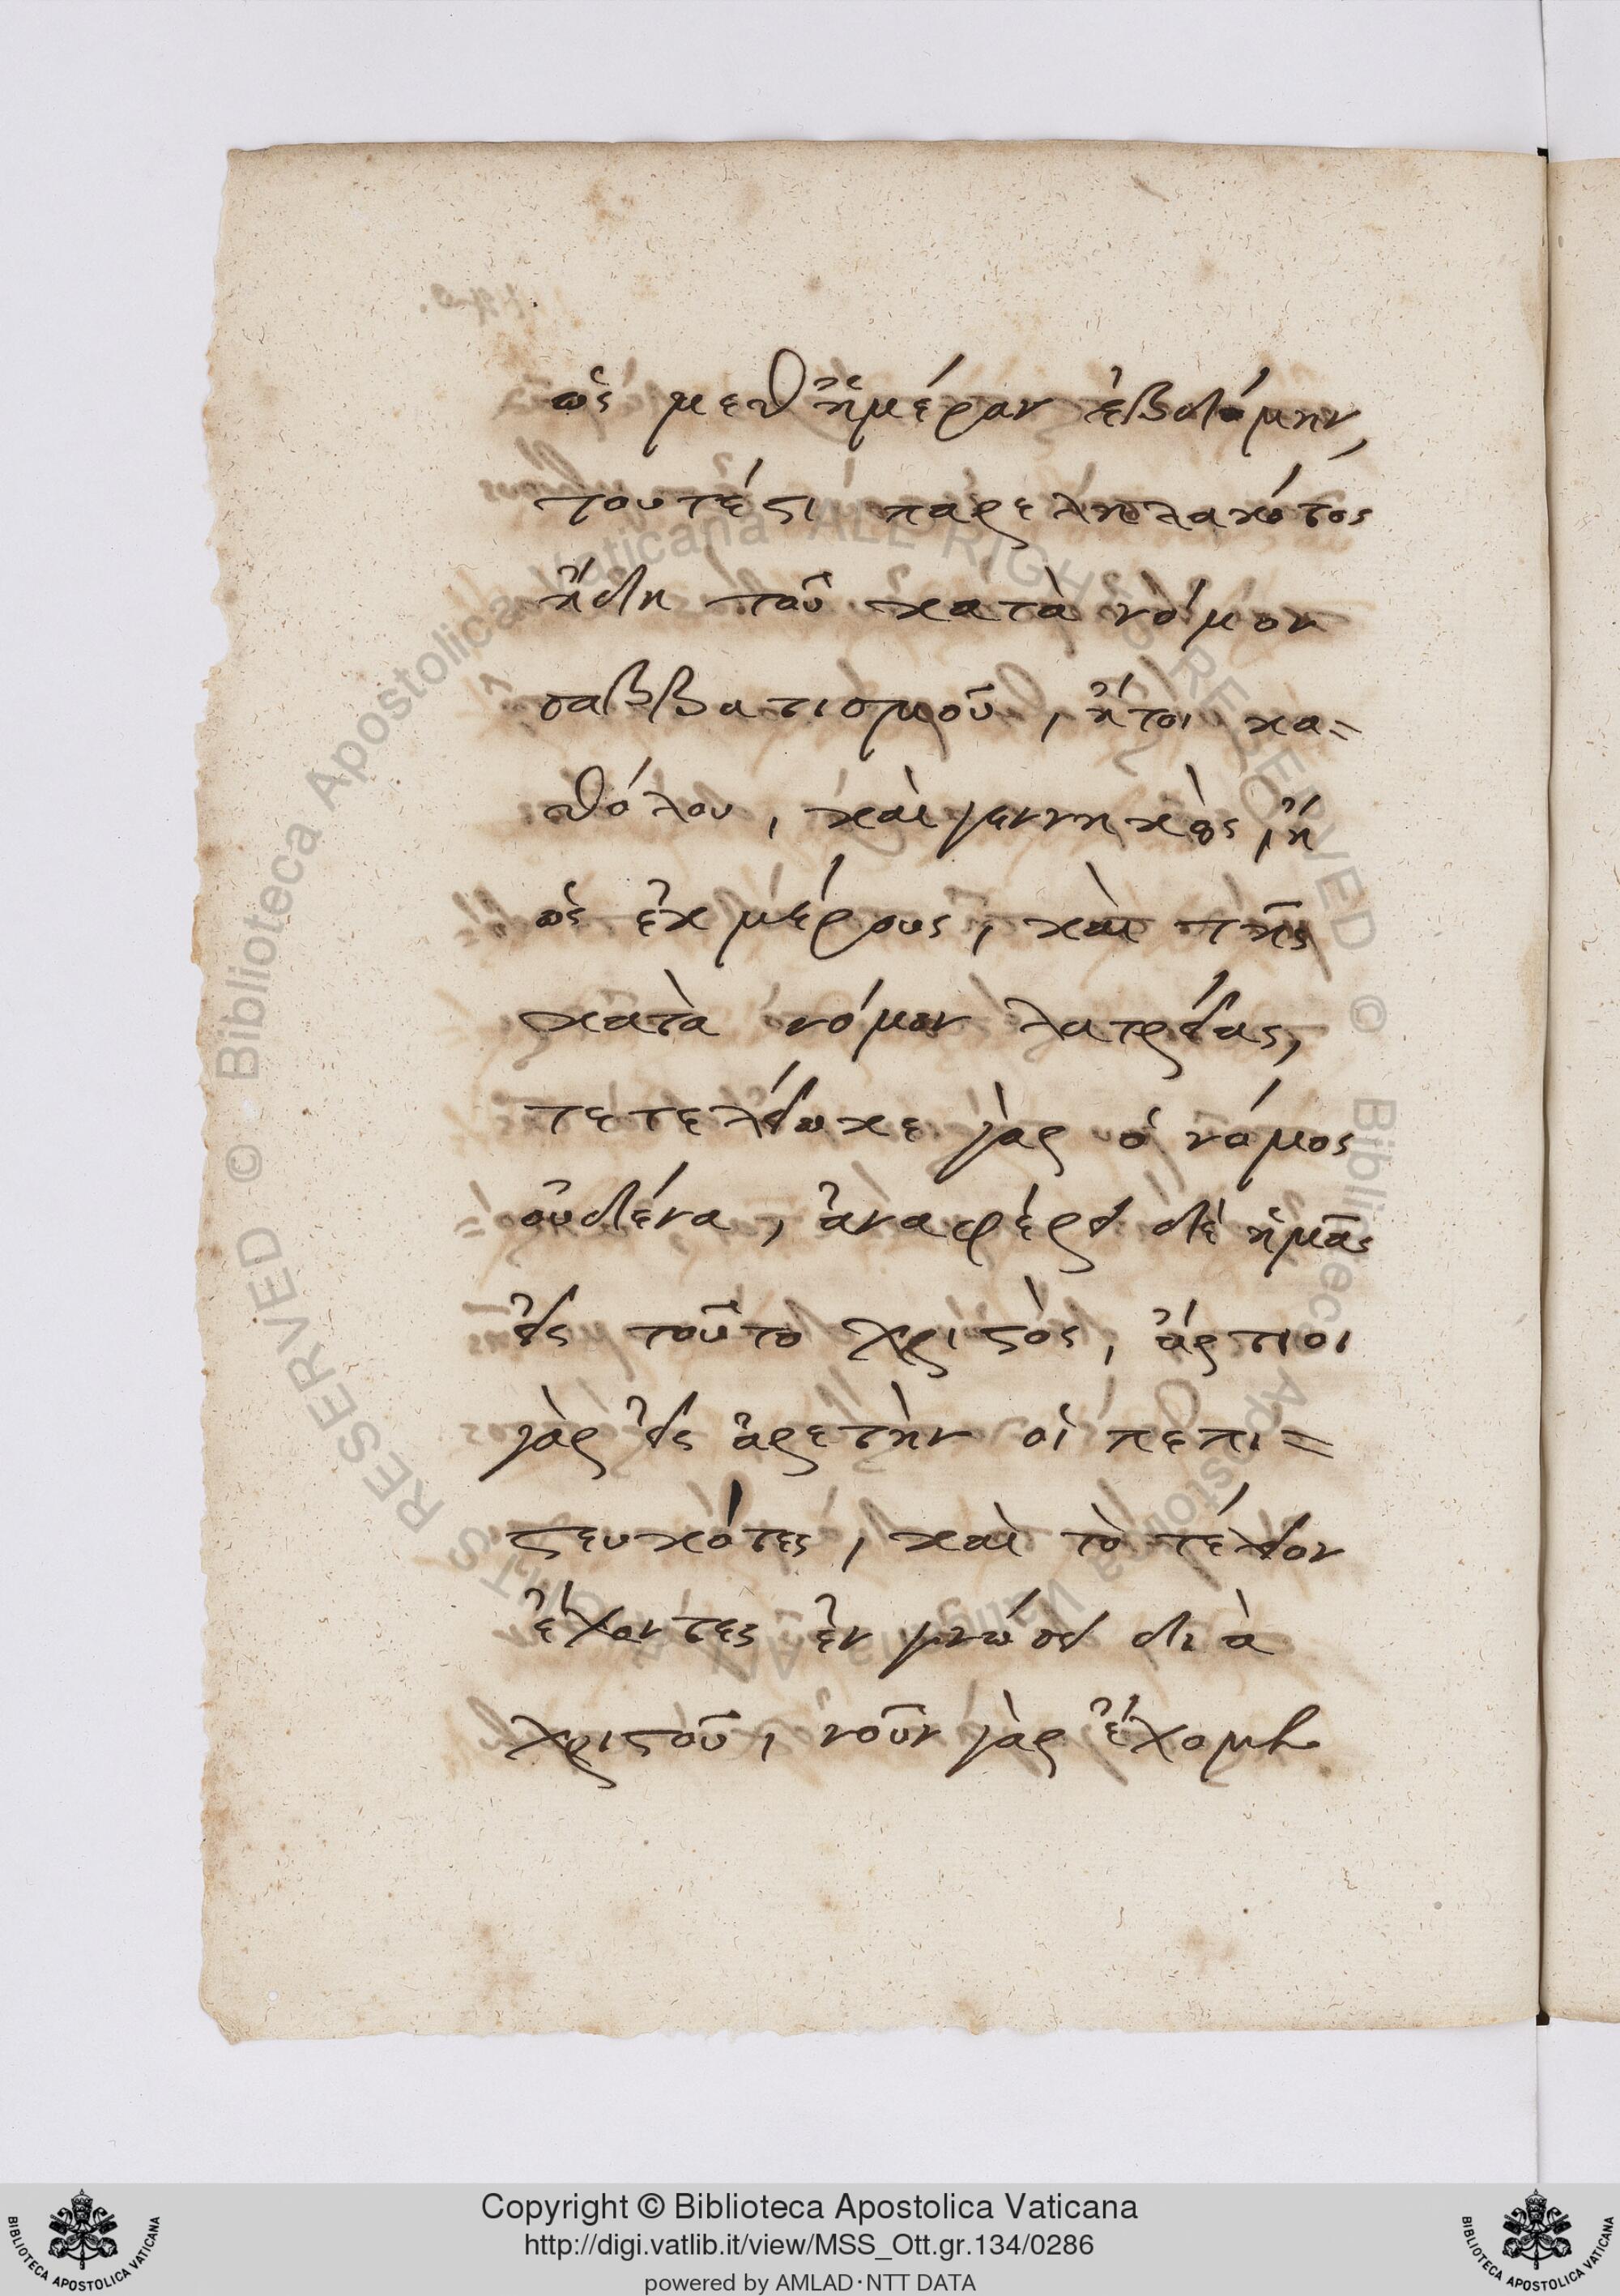 ὡς μεθ ἡμέραν ἑβδόμην,
τουτέστι παρεληλακότος
ἤδη τοῦ κατὰ νόμον
σαββατισμοῦ, ἤτοι κα=
θόλου, καὶ γεννηκῶς, ἢ
ὡς ἐκ μέρους, καὶ τῆς
κατὰ νόμον λατρείας,
τετελείωκε γὰρ ὁ νόμος
οὐδένα, ἀναφέρει δὲ ἡμᾶς
εἰς τοῦτο χριστὸς, ἄρτιοι
γὰρ εἰς ἀρετὴν οἱ πεπι=
στευκότες, καὶ τὸ τέλειον
ἔχοντες ἐν γνώσει διὰ
χριστοῦ, νοῦν γὰρ ἔχομεν
© Biblioteca Apostolica Vaticana ALL RIGHTS RESERVED
© Biblioteca Apostolica Vaticana ALL RIGHTS RESERVED
Copyright © Biblioteca Apostolica Vaticana
http://digi.vatlib.it/view/MSS_Ott.gr.134/0286
powered by AMLAD·NTT DATA
BIBLIOTECA APOSTOLICA VATICANA
BIBLIOTECA APOSTOLICA VATICANA